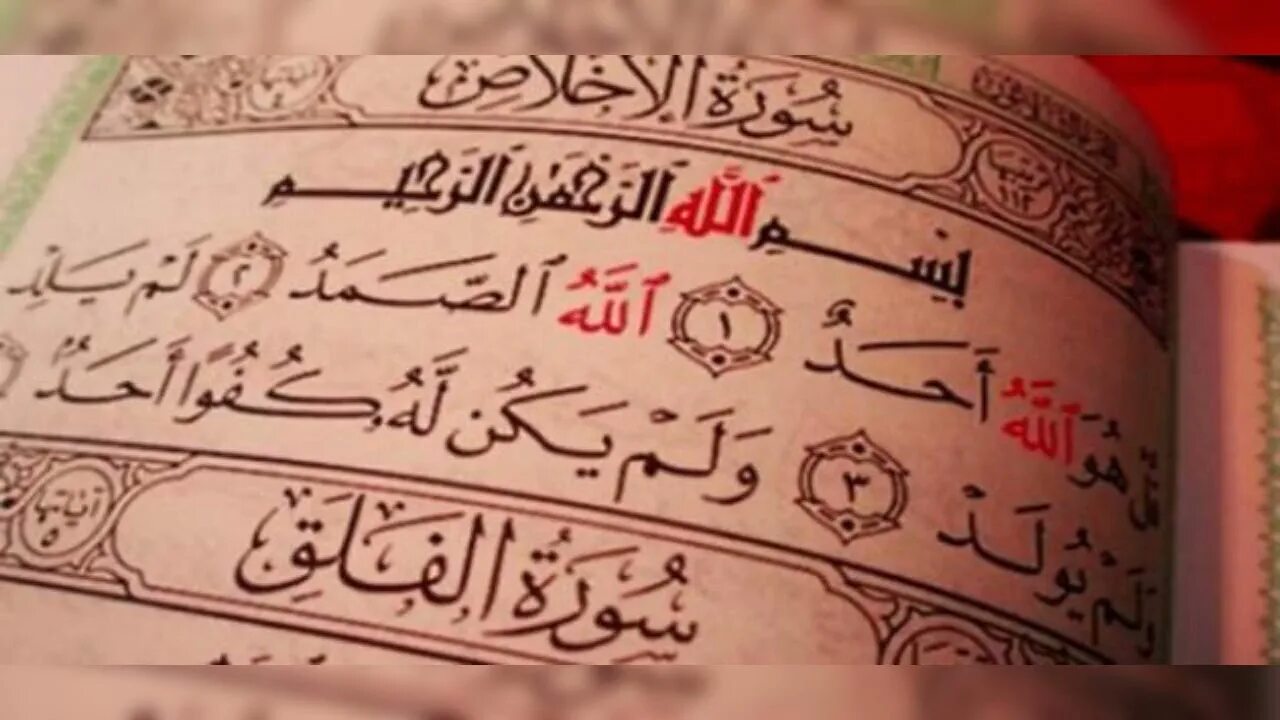 سُورَةُ الإِخْلَاصِ
رتبتها ١١٢
بِسْمِ اللَّهِ الرَّحْمَٰنِ الرَّحِيمِ
قُلْ هُوَ ٱللَّهُ أَحَدٌ ١ ٱللَّهُ ٱلصَّمَدُ ٢ لَمْ يَلِدْ
وَلَمْ يُولَدْ ٣ وَلَمْ يَكُن لَّهُۥ كُفُوًا أَحَدٌۢ
سُورَةُ الفَلَقِ
آياتها ٥